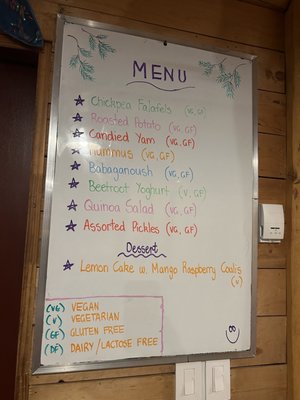 MENU
Chickpea Falafels (VG, GF)
Roasted Potato (VG, GF)
Candied Yam (VG, GF)
Hummus (VG, GF)
Babaganoush (VG, GF)
Beetroot Yoghurt (V, GF)
Quinoa Salad (VG, GF)
Assorted Pickles (VG, GF)
Dessert
Lemon Cake w. Mango Raspberry Coalis
(V)
(VG) VEGAN
(V) VEGETARIAN
(GF) GLUTEN FREE
(DF) DAIRY/LACTOSE FREE